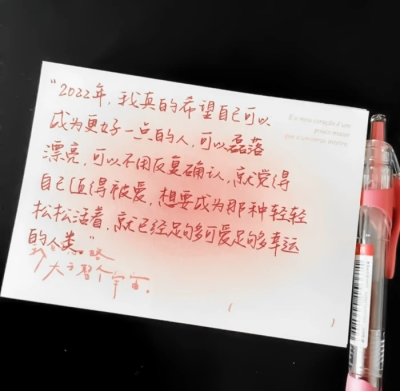 “2022年，我真的希望自己可以
成为更好一点的人，可以磊落
漂亮，可以不用反复确认，就觉得
自己值得被爱，想要成为那种轻轻
松松活着，就已经足够可爱足够幸运
的人类。”
大于整个宇宙。